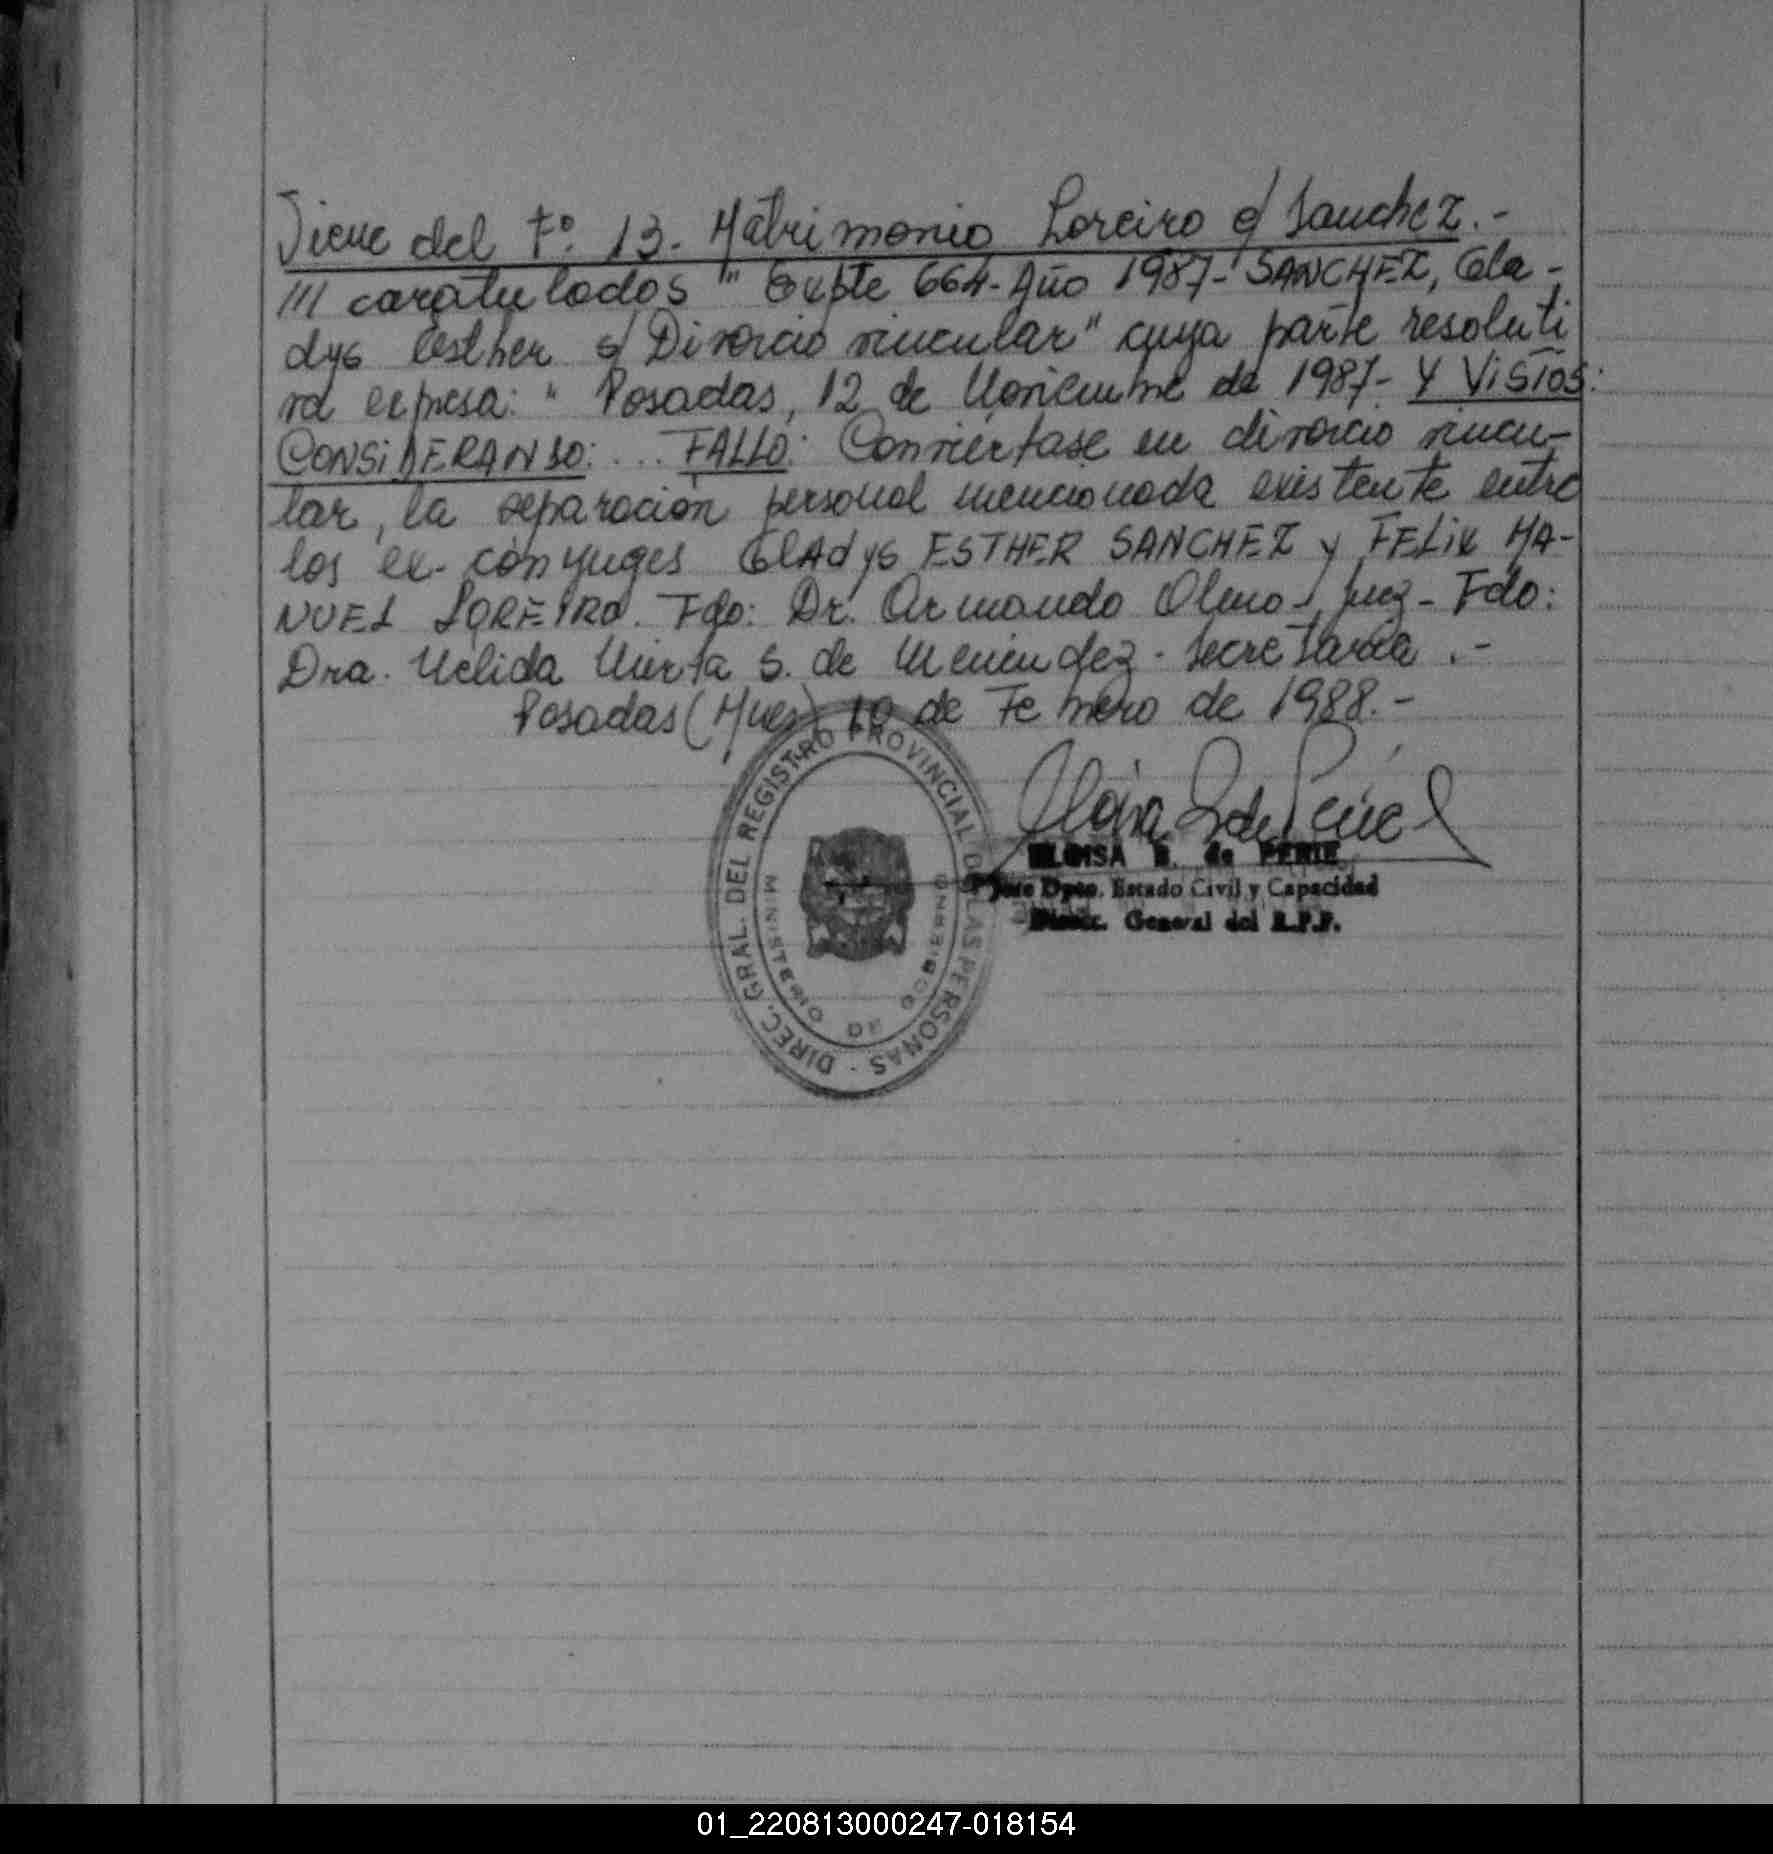 Viene del Fº. 13. Matrimonio Loreiro c/ Sanchez.-
/// caratulados " Expte 664-Año 1987- SANCHEZ, Gla-
dys Esther s/ Divorcio vincular" cuya parte resoluti
va expresa: " Posadas, 12 de Noviembre de 1987- Y ViSTOS:
CONSiDERANDO: ... FALLO: Conviértase en divorcio vincu-
lar, la separación personal mencionada existente entre
los ex-cónyuges GlAdys ESTHER SANCHEZ y FELiX MA-
NUEL LOREIRO. Fdo: Dr. Armando Olmo - Juez - Fdo:
Dra. Nélida Mirta S. de Menéndez - Secretaria .-
Posadas (Mnes) 10 de Febrero de 1988.-
ELOISA de PERIE
Jefe Dpto. Estado Civil y Capacidad
Direc. General del R.P.P.
DIREC. GRAL. DEL REGISTRO PROVINCIAL DE LAS PERSONAS
MINISTERIO DE GOBIERNO
01_220813000247-018154